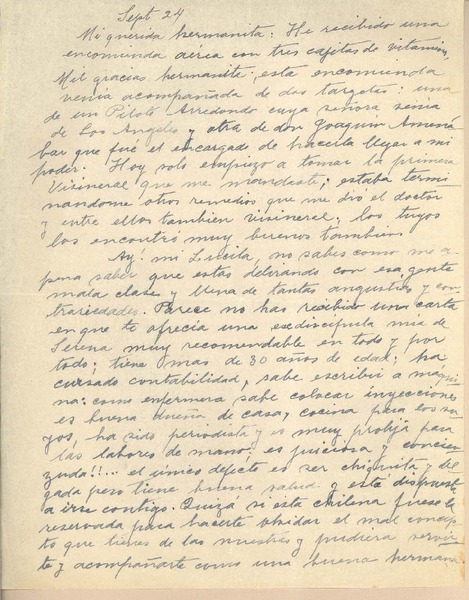 Sept 24
Mi querida hermanita: He recibido una
encomienda aérea con tres cajitas de vitamina,
Mil gracias hermanita, esta encomienda
venía acompañada de dos targetas: una
de un Piloto Arredondo cuya señora sería
de Los Angeles y otra de don Joaquin Amuná
bar que fué el encargado de hacerla llegar a mi
poder: Hoy solo empiezo a tomar la primera
Visineral que me mandaste; estaba termi
nandome otros remedios que me dió el doctor
y entre ellos tambien visineral; los tuyos
los encontró muy buenos tambien.
Ay! mi Lucila, no sabes como me a-
pena saber que estás delirando con esa gente
mala clase y llena de tantas angustias y con
trariedades. Parece no has recibido una carta
en que te ofrecía una exdiscípula mia de
Serena muy recomendable en todo y por
todo; tiene mas de 30 años de edad; ha
cursado contabilidad, sabe escribir a máqui
na: como enfermera sabe colocar inyecciones
es buena dueña de casa, cocina para los su
yos, ha sido periodista y es muy prolija para
las labores de mano; es juiciosa y concien
zuda!!... el único defecto es ser chiquita y del
gada pero tiene buena salud y está dispuesta
a irse contigo. Quizá si esta chilena fuese la
reservada para hacerte olvidar el mal concep
to que tienes de las nuestras y pudiera servir
te y acompañarte como una buena hermana